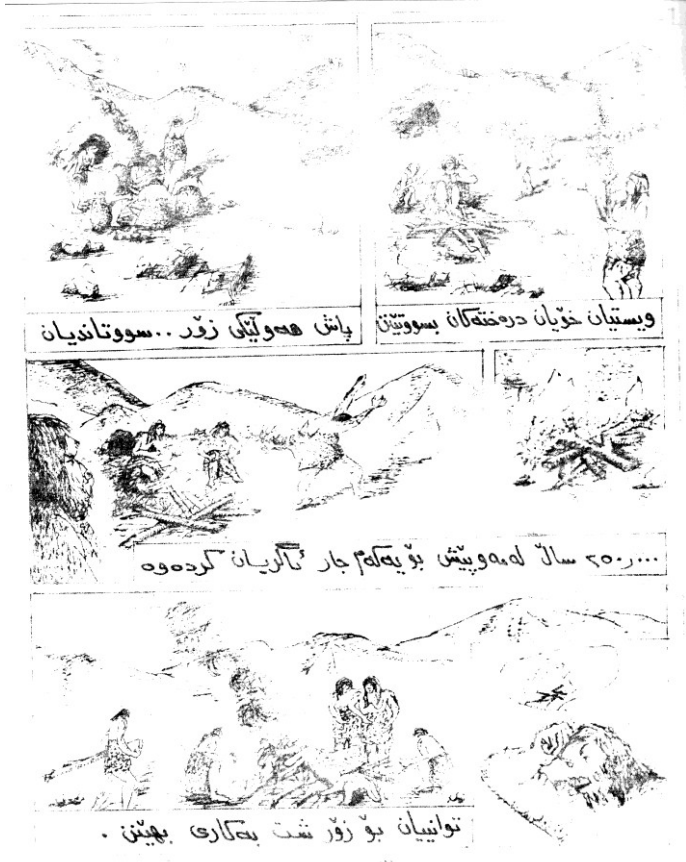 ویستیان خۆیان درەختەکان بسووتێنن
پاش هەوڵێکی زۆر ..سووتاندیان
٢٥٠ر٠٠٠ ساڵ لەمەوپێش بۆ یەکەم جار ئاگریان کردەوە
توانییان بۆ زۆر شت بەکاری بهێنن .